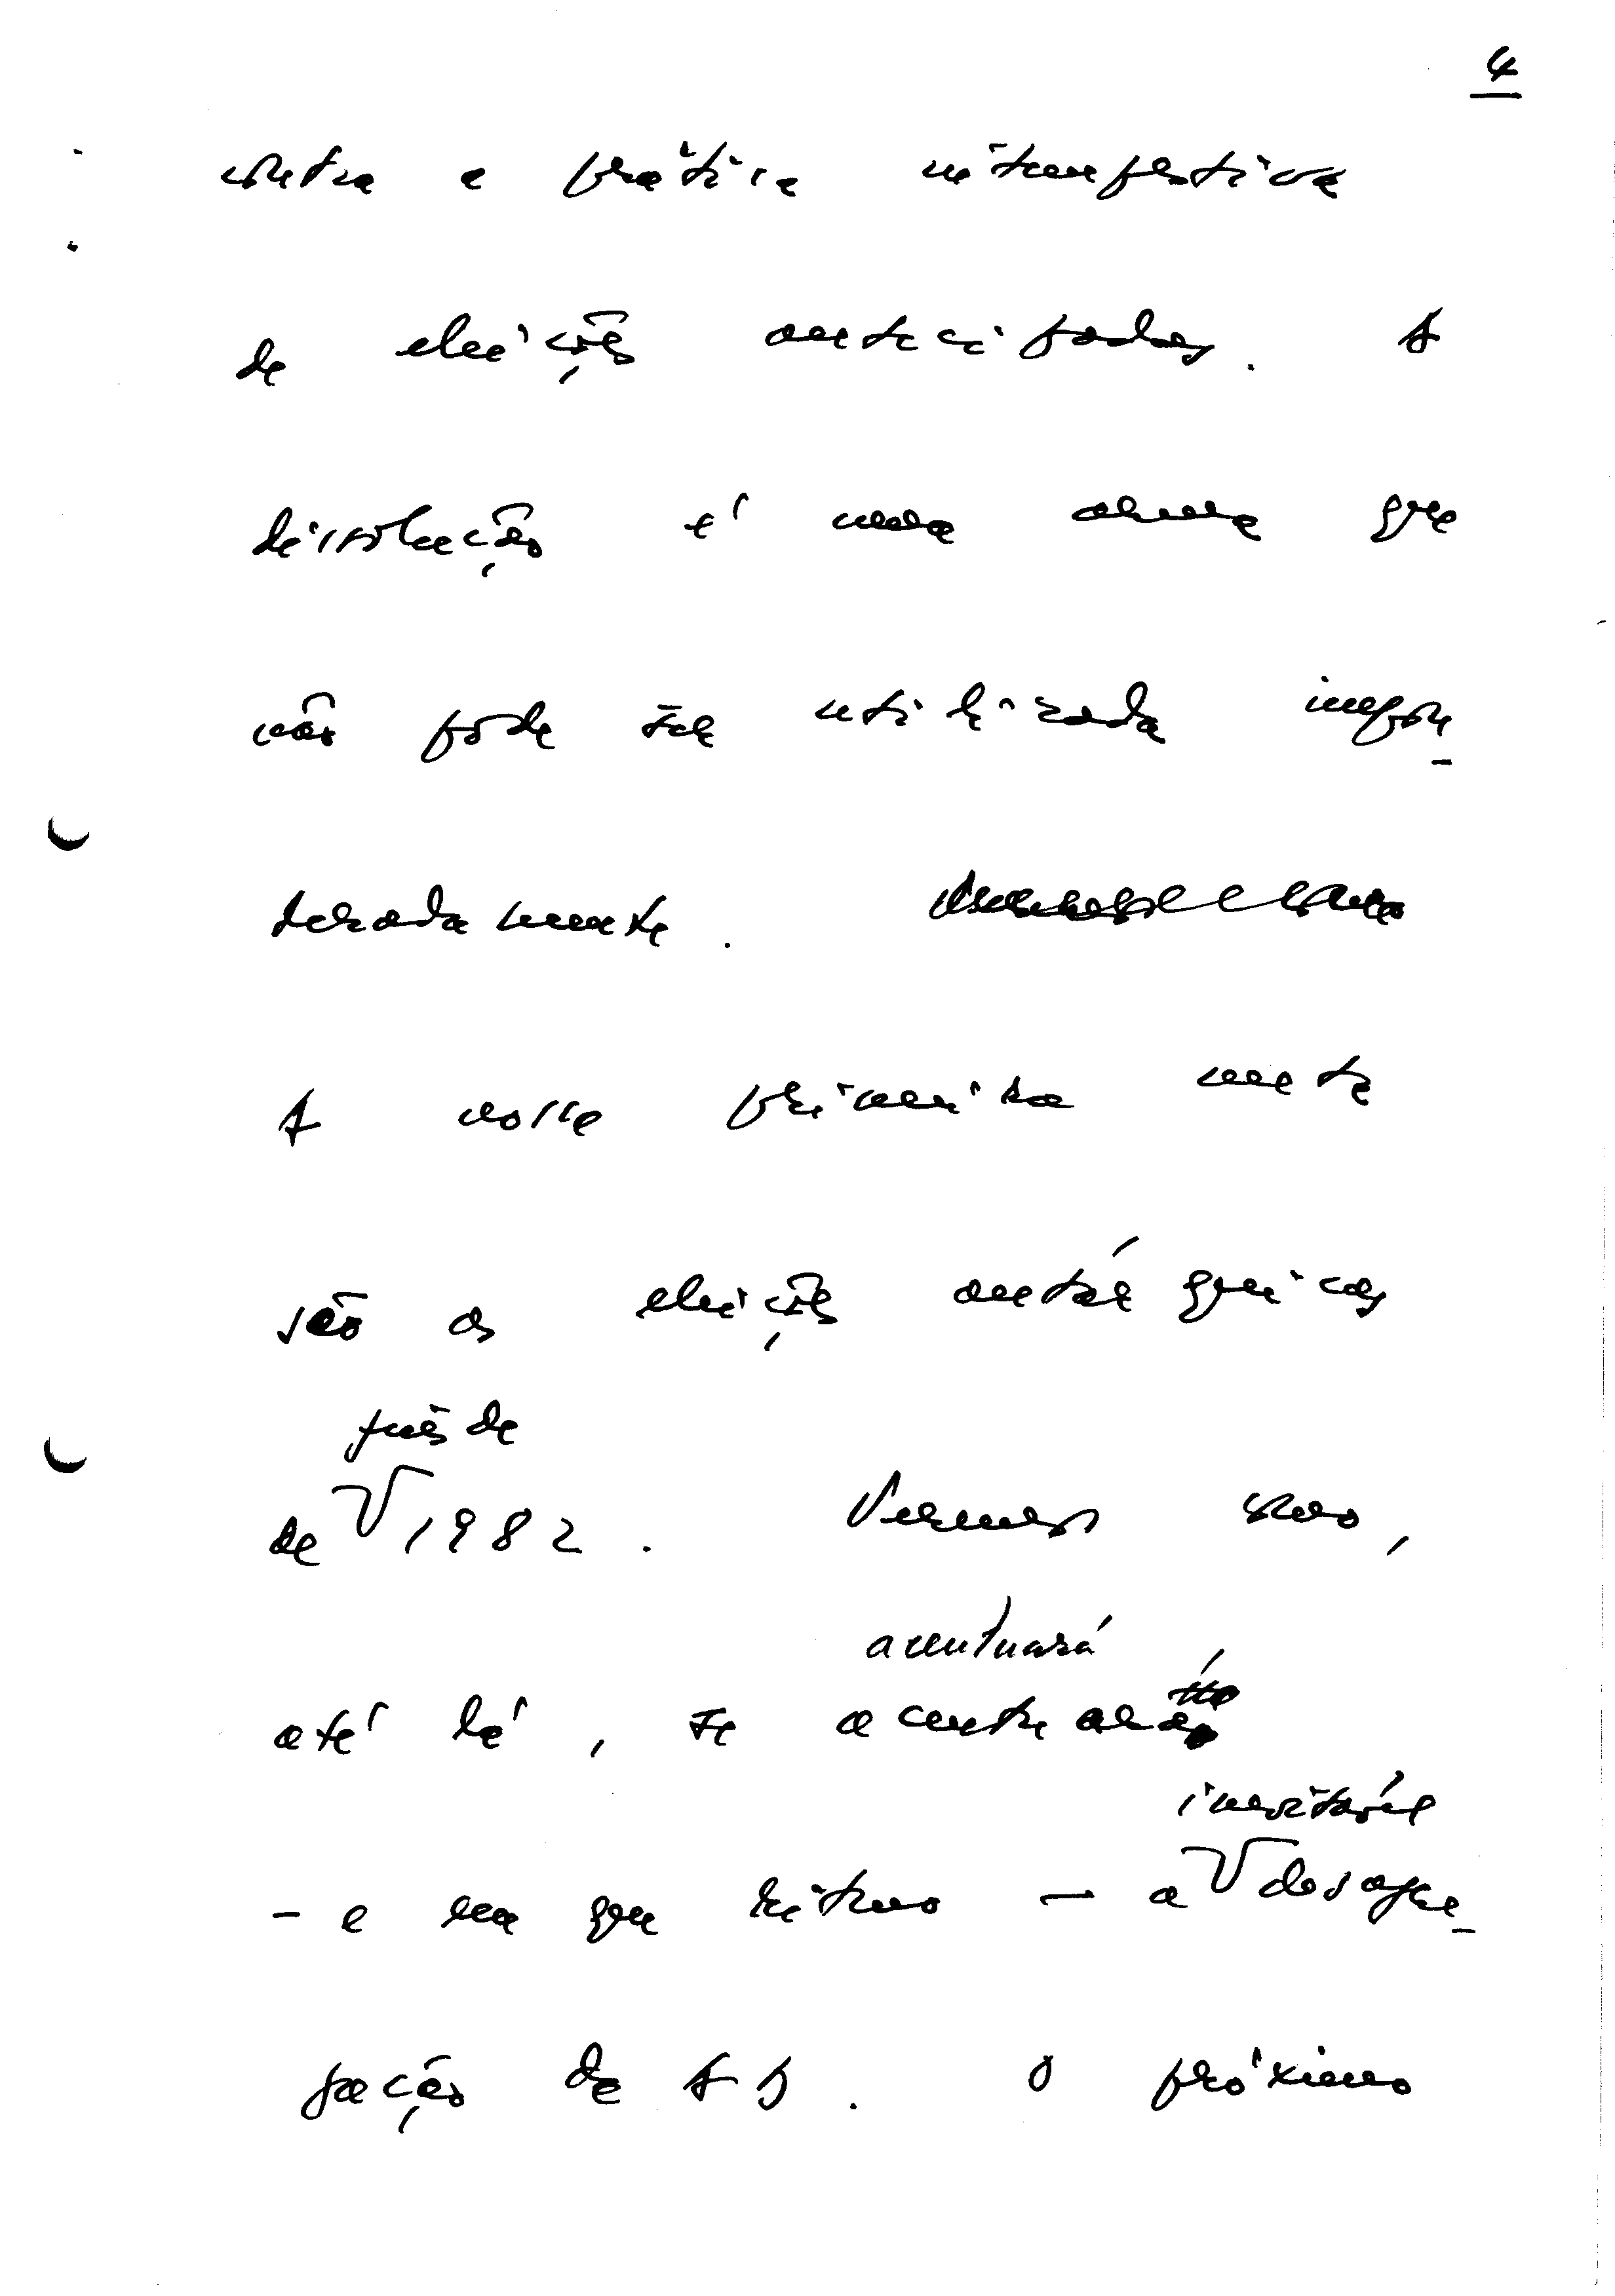 4
contra a prática intempestiva
de eleições antecipadas. A
dissolução é uma arma que
não pode ser utilizada impon-
deradamente.
A nossa primeira meta
são as eleições autárquicas
fins de
de 1982. Veremos como,
acentuará
até lá, se acentuará
inevitável
- e em que ritmo - a desagre-
gação da AD. O próximo